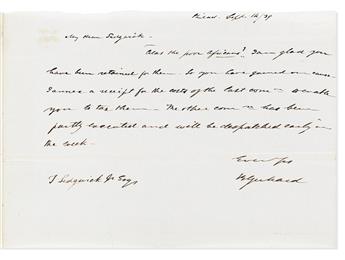 Philad. Sept. 14/39
My dear Sedgwick.
Alas the poor Africans! I am glad you
have been retained for them. So you have gained our cause.
I annex a receipt for the costs of the last com - to enable
you to tax them - The other com - has been
partly executed and will be despatched early in
the week -
Ever yrs
B Gerhard
T Sedgwick Jr Esq